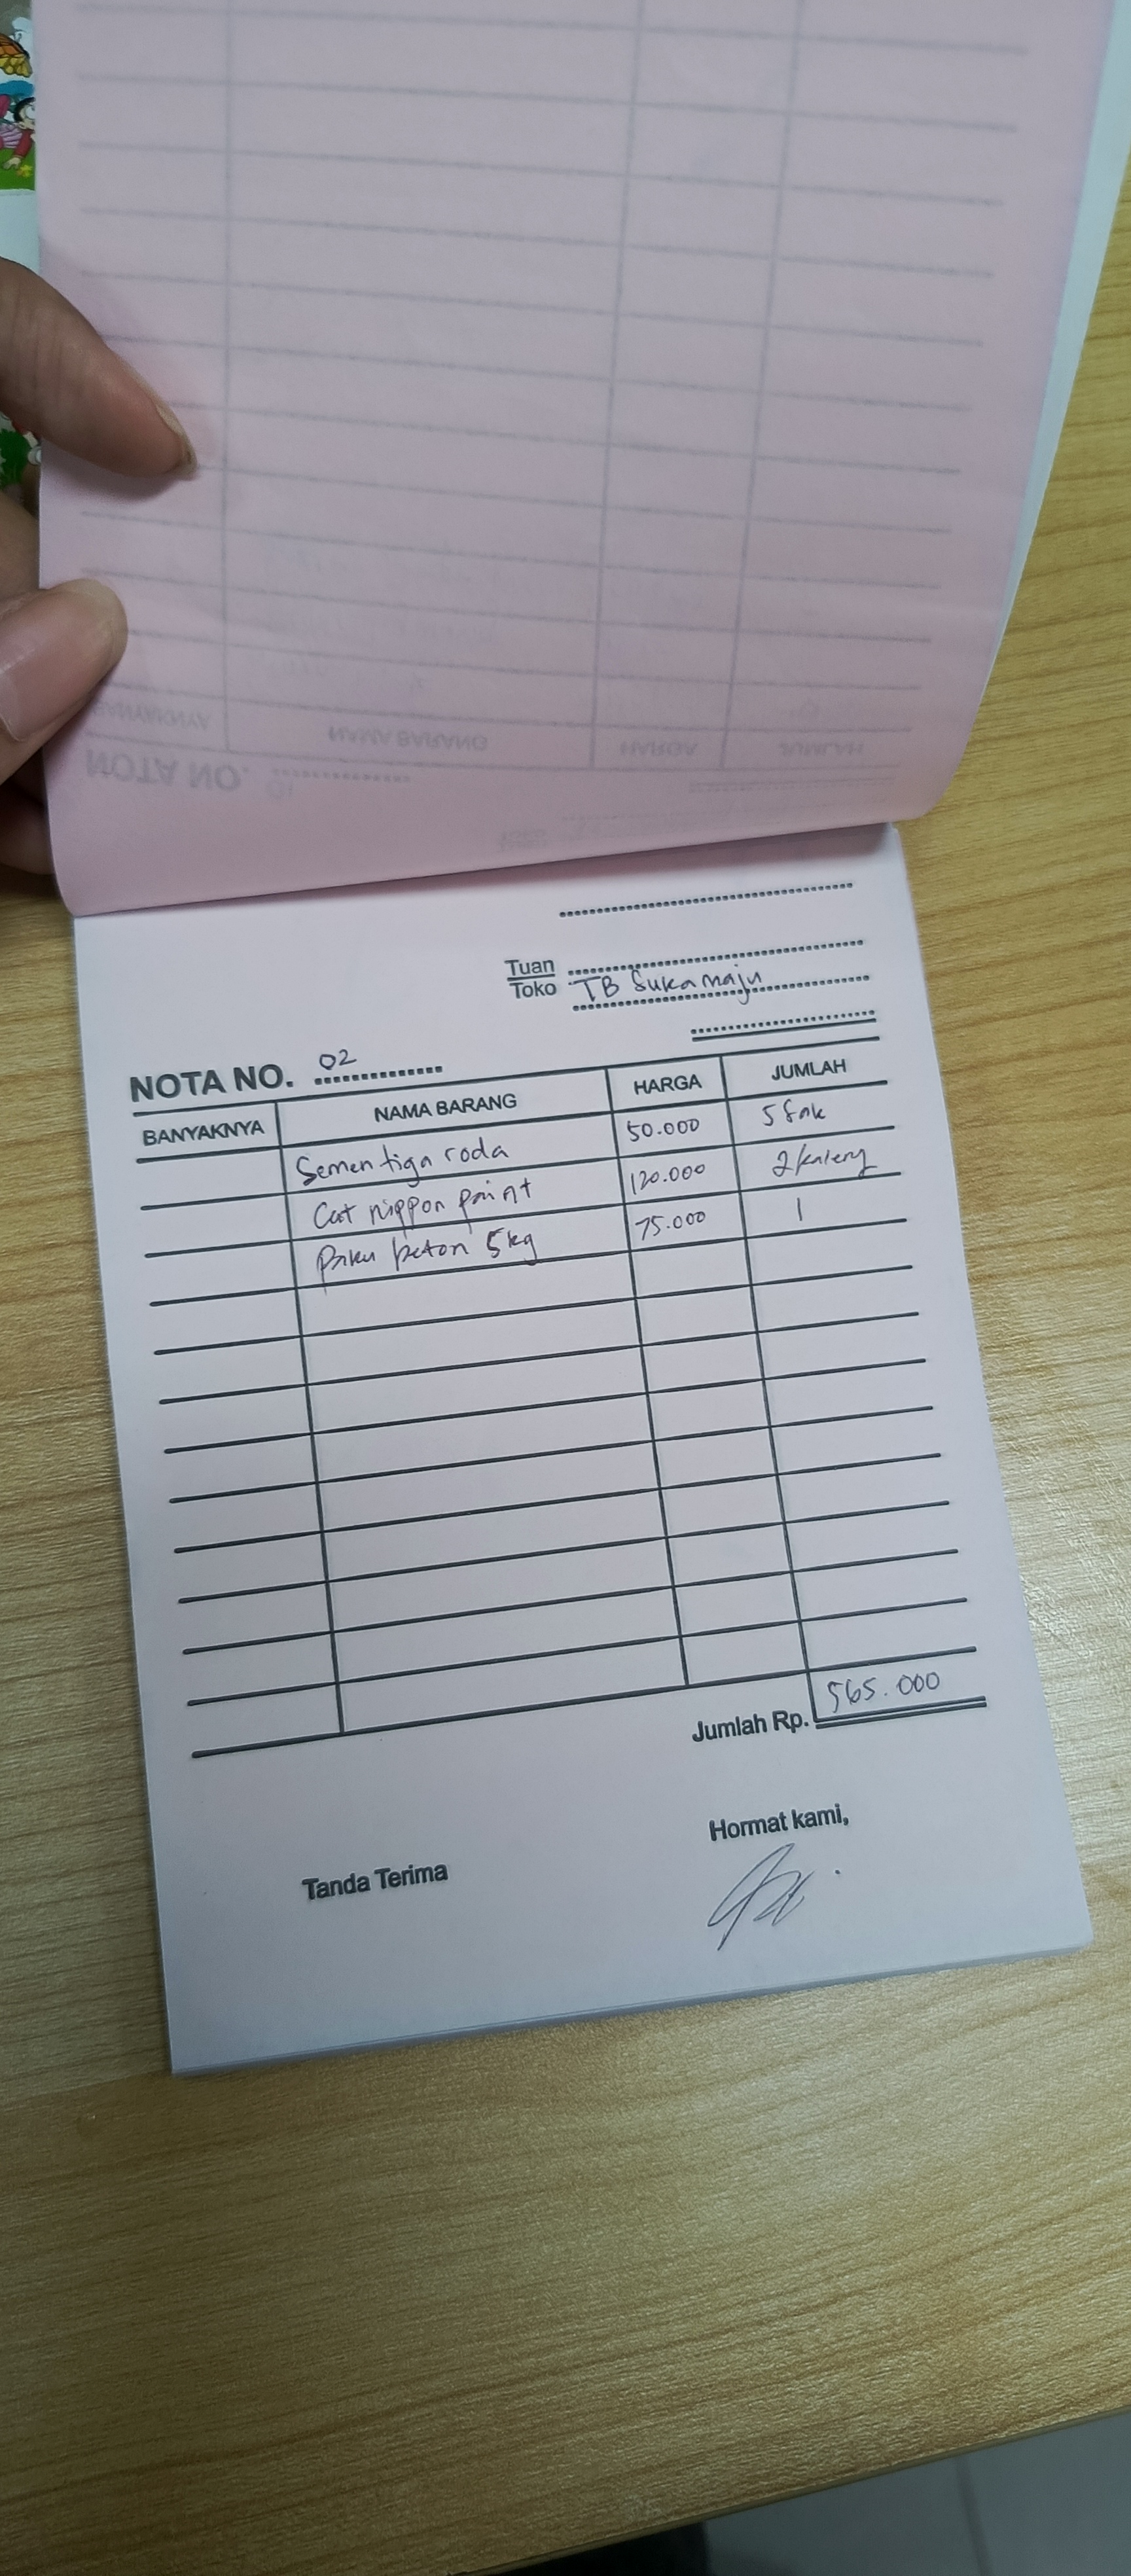 Tuan
Toko TB Sukamaju
NOTA NO. 02
BANYAKNYA NAMA BARANG HARGA JUMLAH
Semen tiga roda 50.000 5 Sak
Cat nippon paint 120.000 2 kaleng
Paku beton 5kg 75.000 1
Jumlah Rp. 565.000
Tanda Terima Hormat kami,